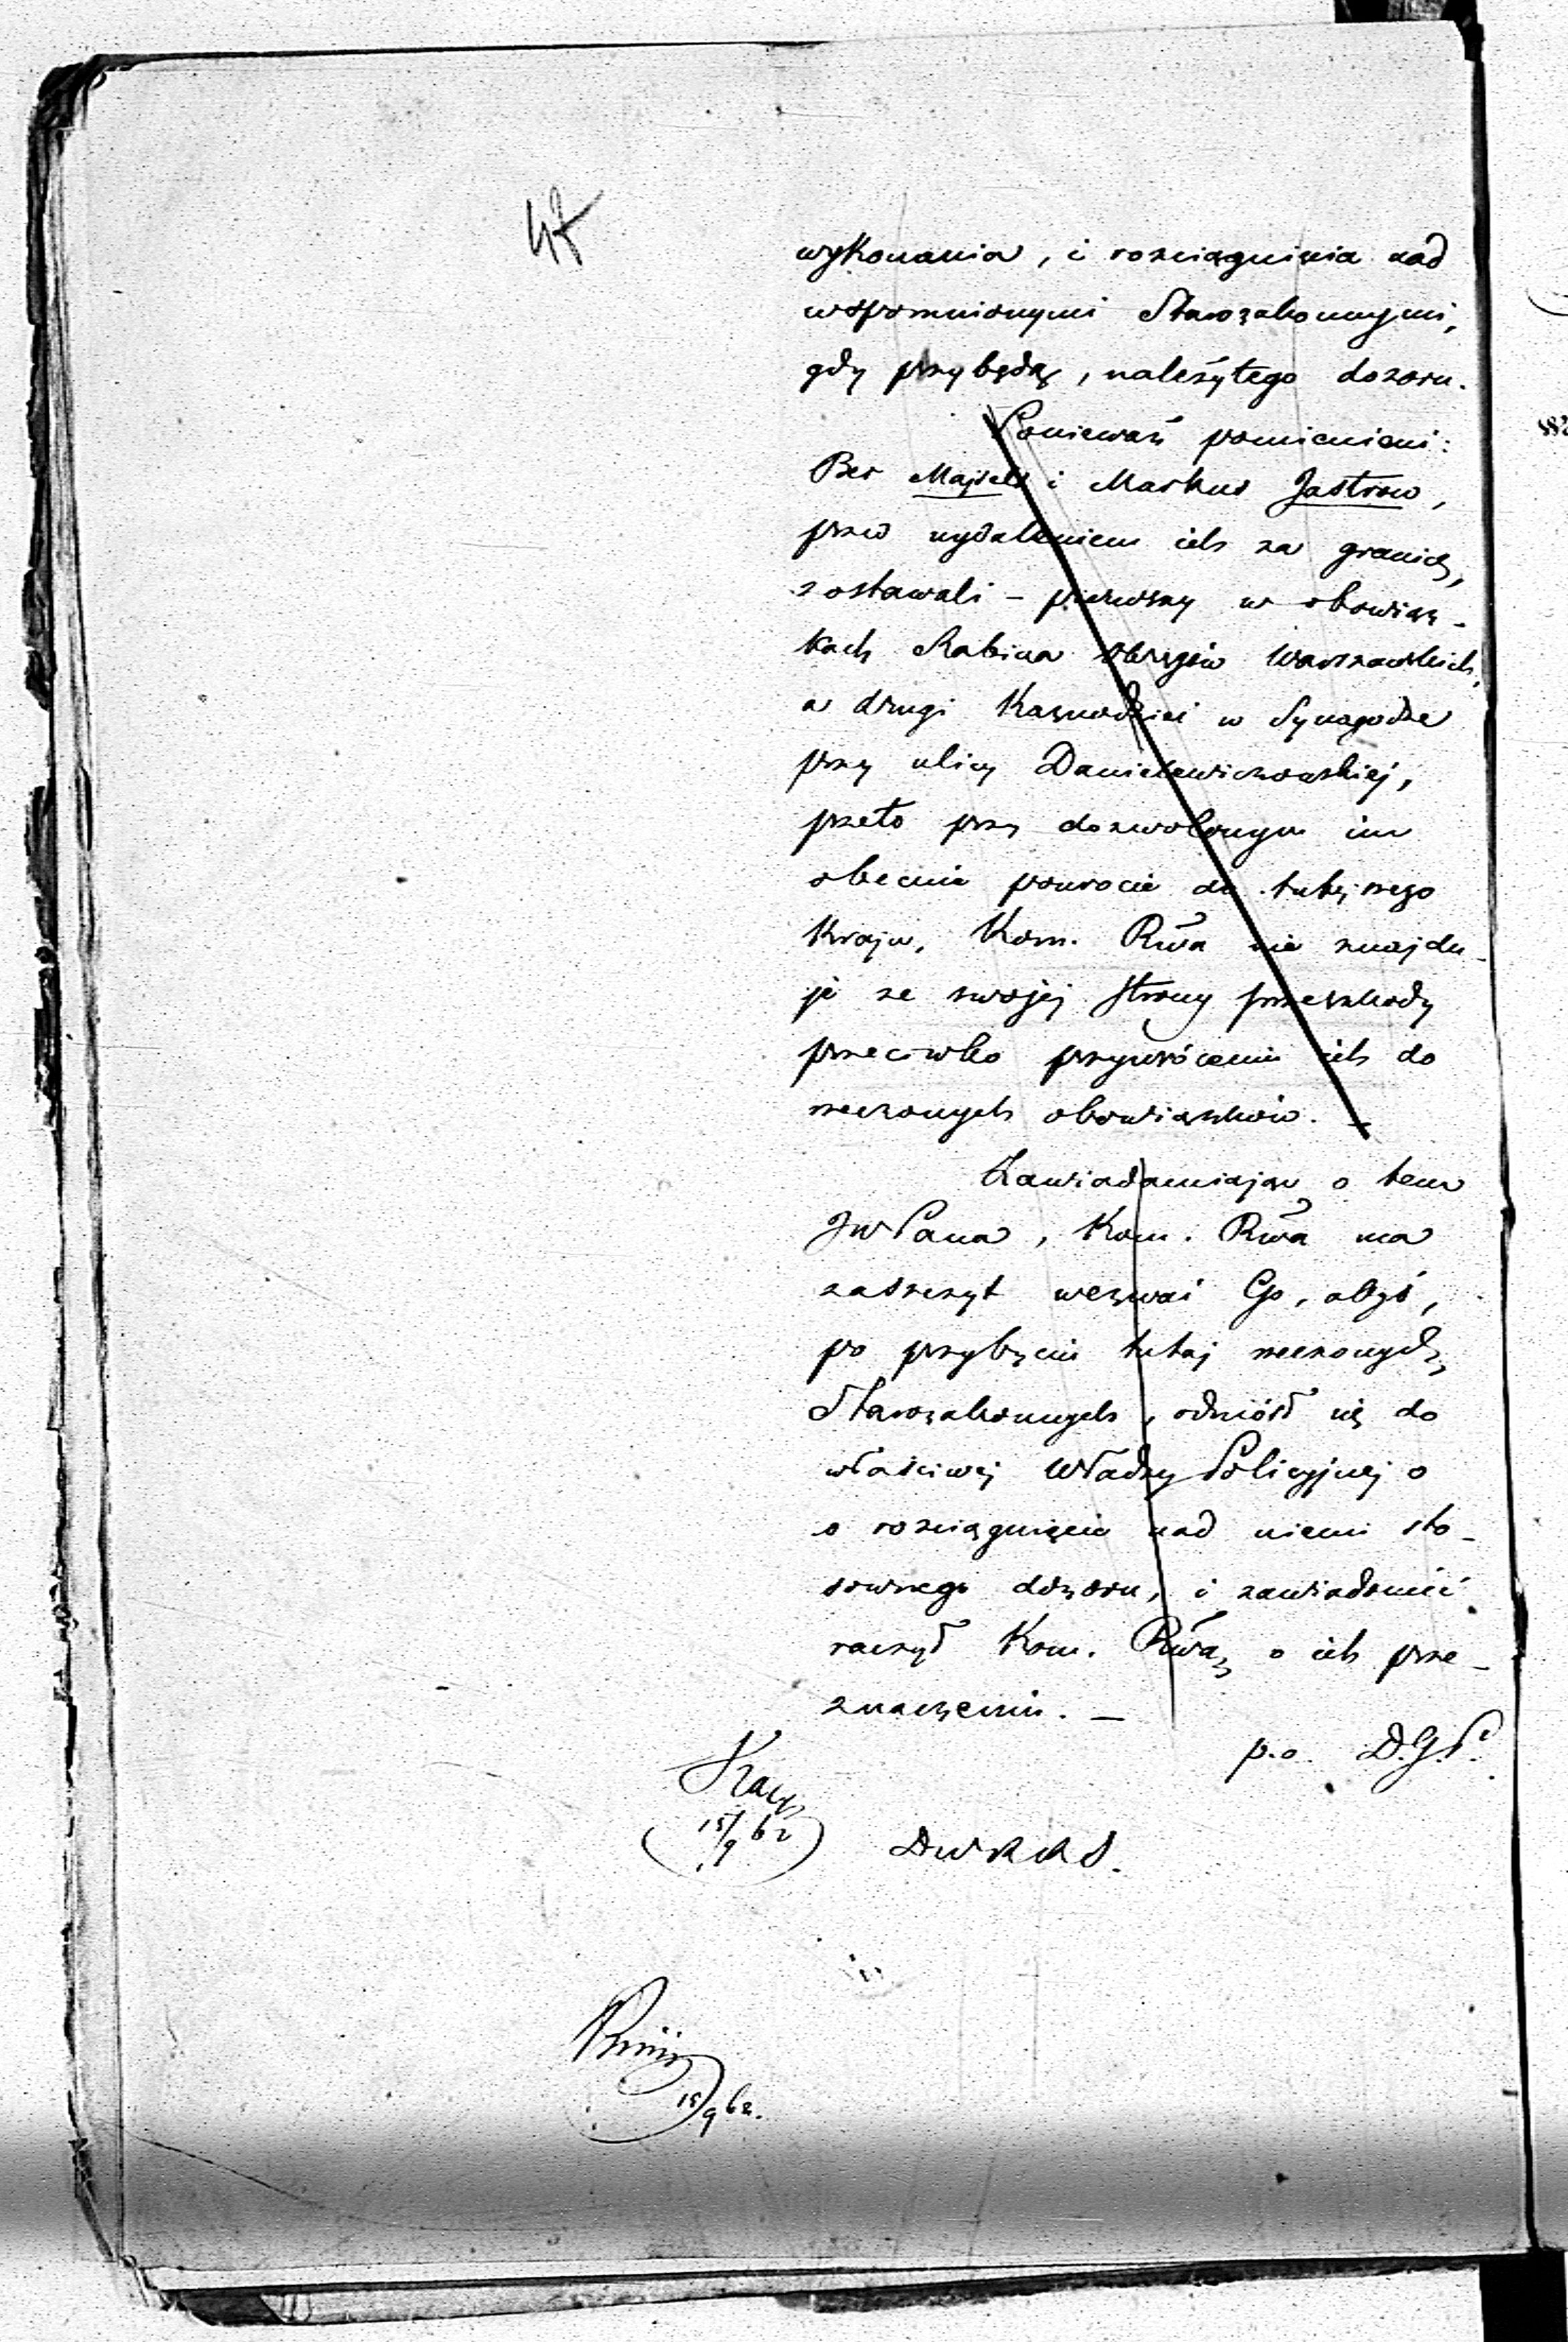 47
wykonania, i rozciągnienia nad
wspomnionymi Starozakonnymi,
gdy przybędą, należytego dozoru.
Ponieważ pomienieni:
Ber Majsels i Markus Jastrow,
przed wydaleniem ich za granicę,
zostawali – pierwszy w obowiąz-
kach Rabina Okręgów Warszawskich,
a drugi Kaznodziei w Synagodze
przy ulicy Danielewiczowskiej,
przeto przy dozwolonym im
obecnie powrocie do tutejszego
Kraju, Kom. Rwa nie znajdu-
je ze swojej strony przeszkody
przeciwko przywróceniu ich do
rzeczonych obowiązków. –
Zawiadamiając o tem
JWPana, Kom. Rwa ma
zaszczyt wezwać Go, abyś,
po przybyciu tutaj rzeczonych
Starozakonnych, odniósł się do
właściwej Władzy Policyjnej o
o rozciągnięcie nad niemi sto-
sownego dozoru, i zawiadomić
raczył Kom. Rwą o ich prze-
znaczeniu. –
p.o. D.G.P.
15/9 62
15/9 62.